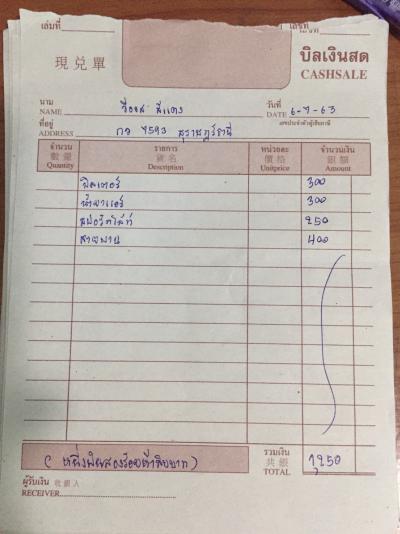 เล่มที่ เลขที่
現兑單 บิลเงินสด
CASHSALE
นาม
NAME วีออส สีแดง วันที่
DATE 6-7-63
ที่อยู่ เลขประจำตัวผู้เสียภาษี
ADDRESS กอ 7593 สุราษฎร์ธานี
จำนวน รายการ หน่วยละ จำนวนเงิน
數量 貨名 價格 銀額
Quantity Description Unitprice Amount
ฟิลเตอร์ 300
น้ำยาแอร์ 300
สปอร์ตไลท์ 250
สายพาน 400
( หนึ่งพันสองร้อยห้าสิบบาท ) รวมเงิน
共銀
TOTAL 1,250
ผู้รับเงิน 收銀人
RECEIVER